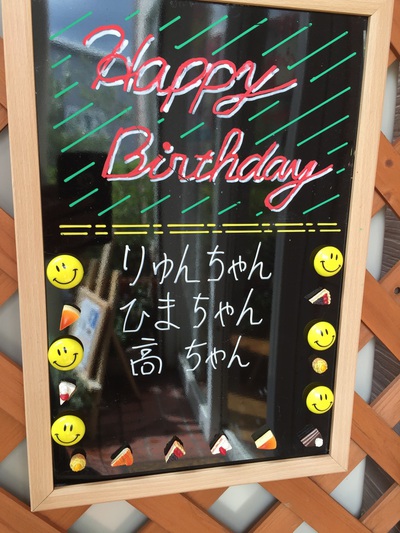 Happy
Birthday
りゅんちゃん
ひまちゃん
高ちゃん